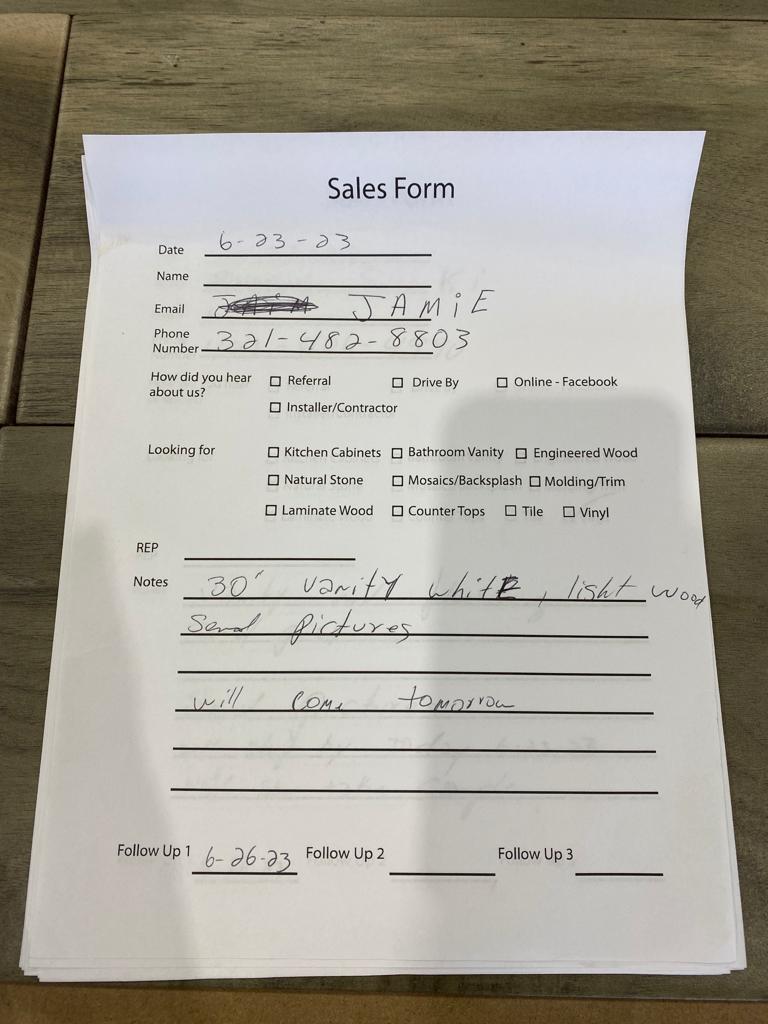 Sales Form
Date 6-23-23
Name
Email JAMiE
Phone Number 321-482-8803
How did you hear about us? ☐ Referral ☐ Drive By ☐ Online - Facebook
☐ Installer/Contractor
Looking for ☐ Kitchen Cabinets ☐ Bathroom Vanity ☐ Engineered Wood
☐ Natural Stone ☐ Mosaics/Backsplash ☐ Molding/Trim
☐ Laminate Wood ☐ Counter Tops ☐ Tile ☐ Vinyl
REP
Notes 30" vanity white, light wood
Send pictures
will come tomorrow
Follow Up 1 6-26-23 Follow Up 2 Follow Up 3